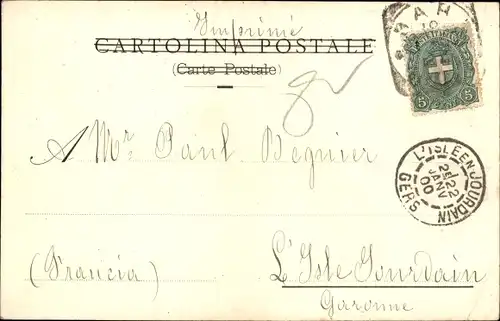 Imprimé
CARTOLINA POSTALE
(Carte Postale)
A Mr Paul Begnier
L'ISLE EN JOURDAIN
22
JANV
00
GERS
(Francia)
L'Isle Jourdain
Garonne
5
5